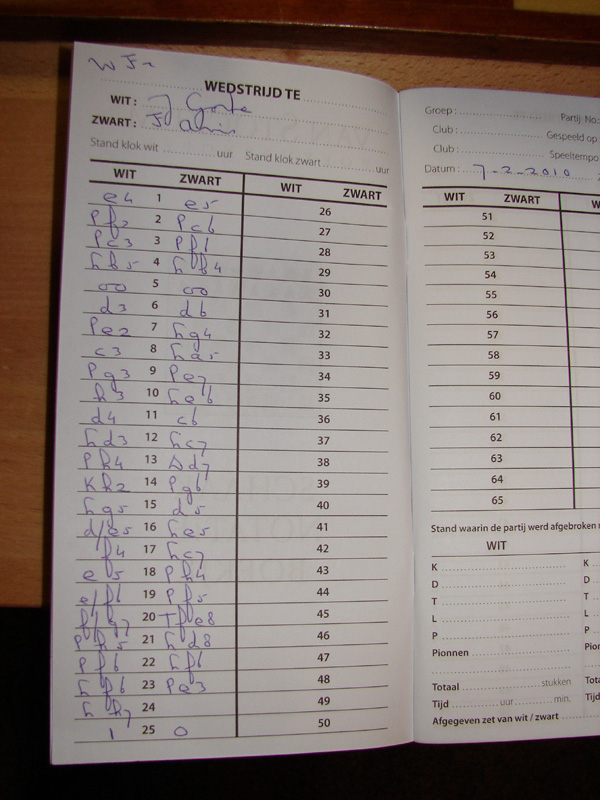 WEDSTRIJD TE
WIT : J
ZWART :
Stand klok wit uur Stand klok zwart uur
WIT ZWART WIT ZWART
e4 1 e5 26
Pf3 2 Pc6 27
Pc3 3 Pf6 28
Lb5 4 Lb4 29
oo 5 oo 30
d3 6 d6 31
Pe2 7 Lg4 32
c3 8 La5 33
Pg3 9 Pe7 34
h3 10 Le6 35
d4 11 c6 36
Ld3 12 Lc7 37
Ph4 13 Dd7 38
Kh2 14 Pg6 39
Lg5 15 d5 40
d/e5 16 Le5 41
f4 17 Lc7 42
e5 18 Ph4 43
e/f6 19 Pf5 44
f/g7 20 Tfe8 45
Ph5 21 Ld8 46
Pf6 22 Lf6 47
Lf6 23 Pe3 48
Lh7 24 49
1 25 0 50
Groep : Partij No:
Club : Gespeeld op
Club : Speeltempo
Datum : 7-2-2010
WIT ZWART W
51
52
53
54
55
56
57
58
59
60
61
62
63
64
65
Stand waarin de partij werd afgebroken
WIT
K K
D D
T T
L L
P P
Pionnen
Totaal stukken
Tijd uur min.
Afgegeven zet van wit / zwart